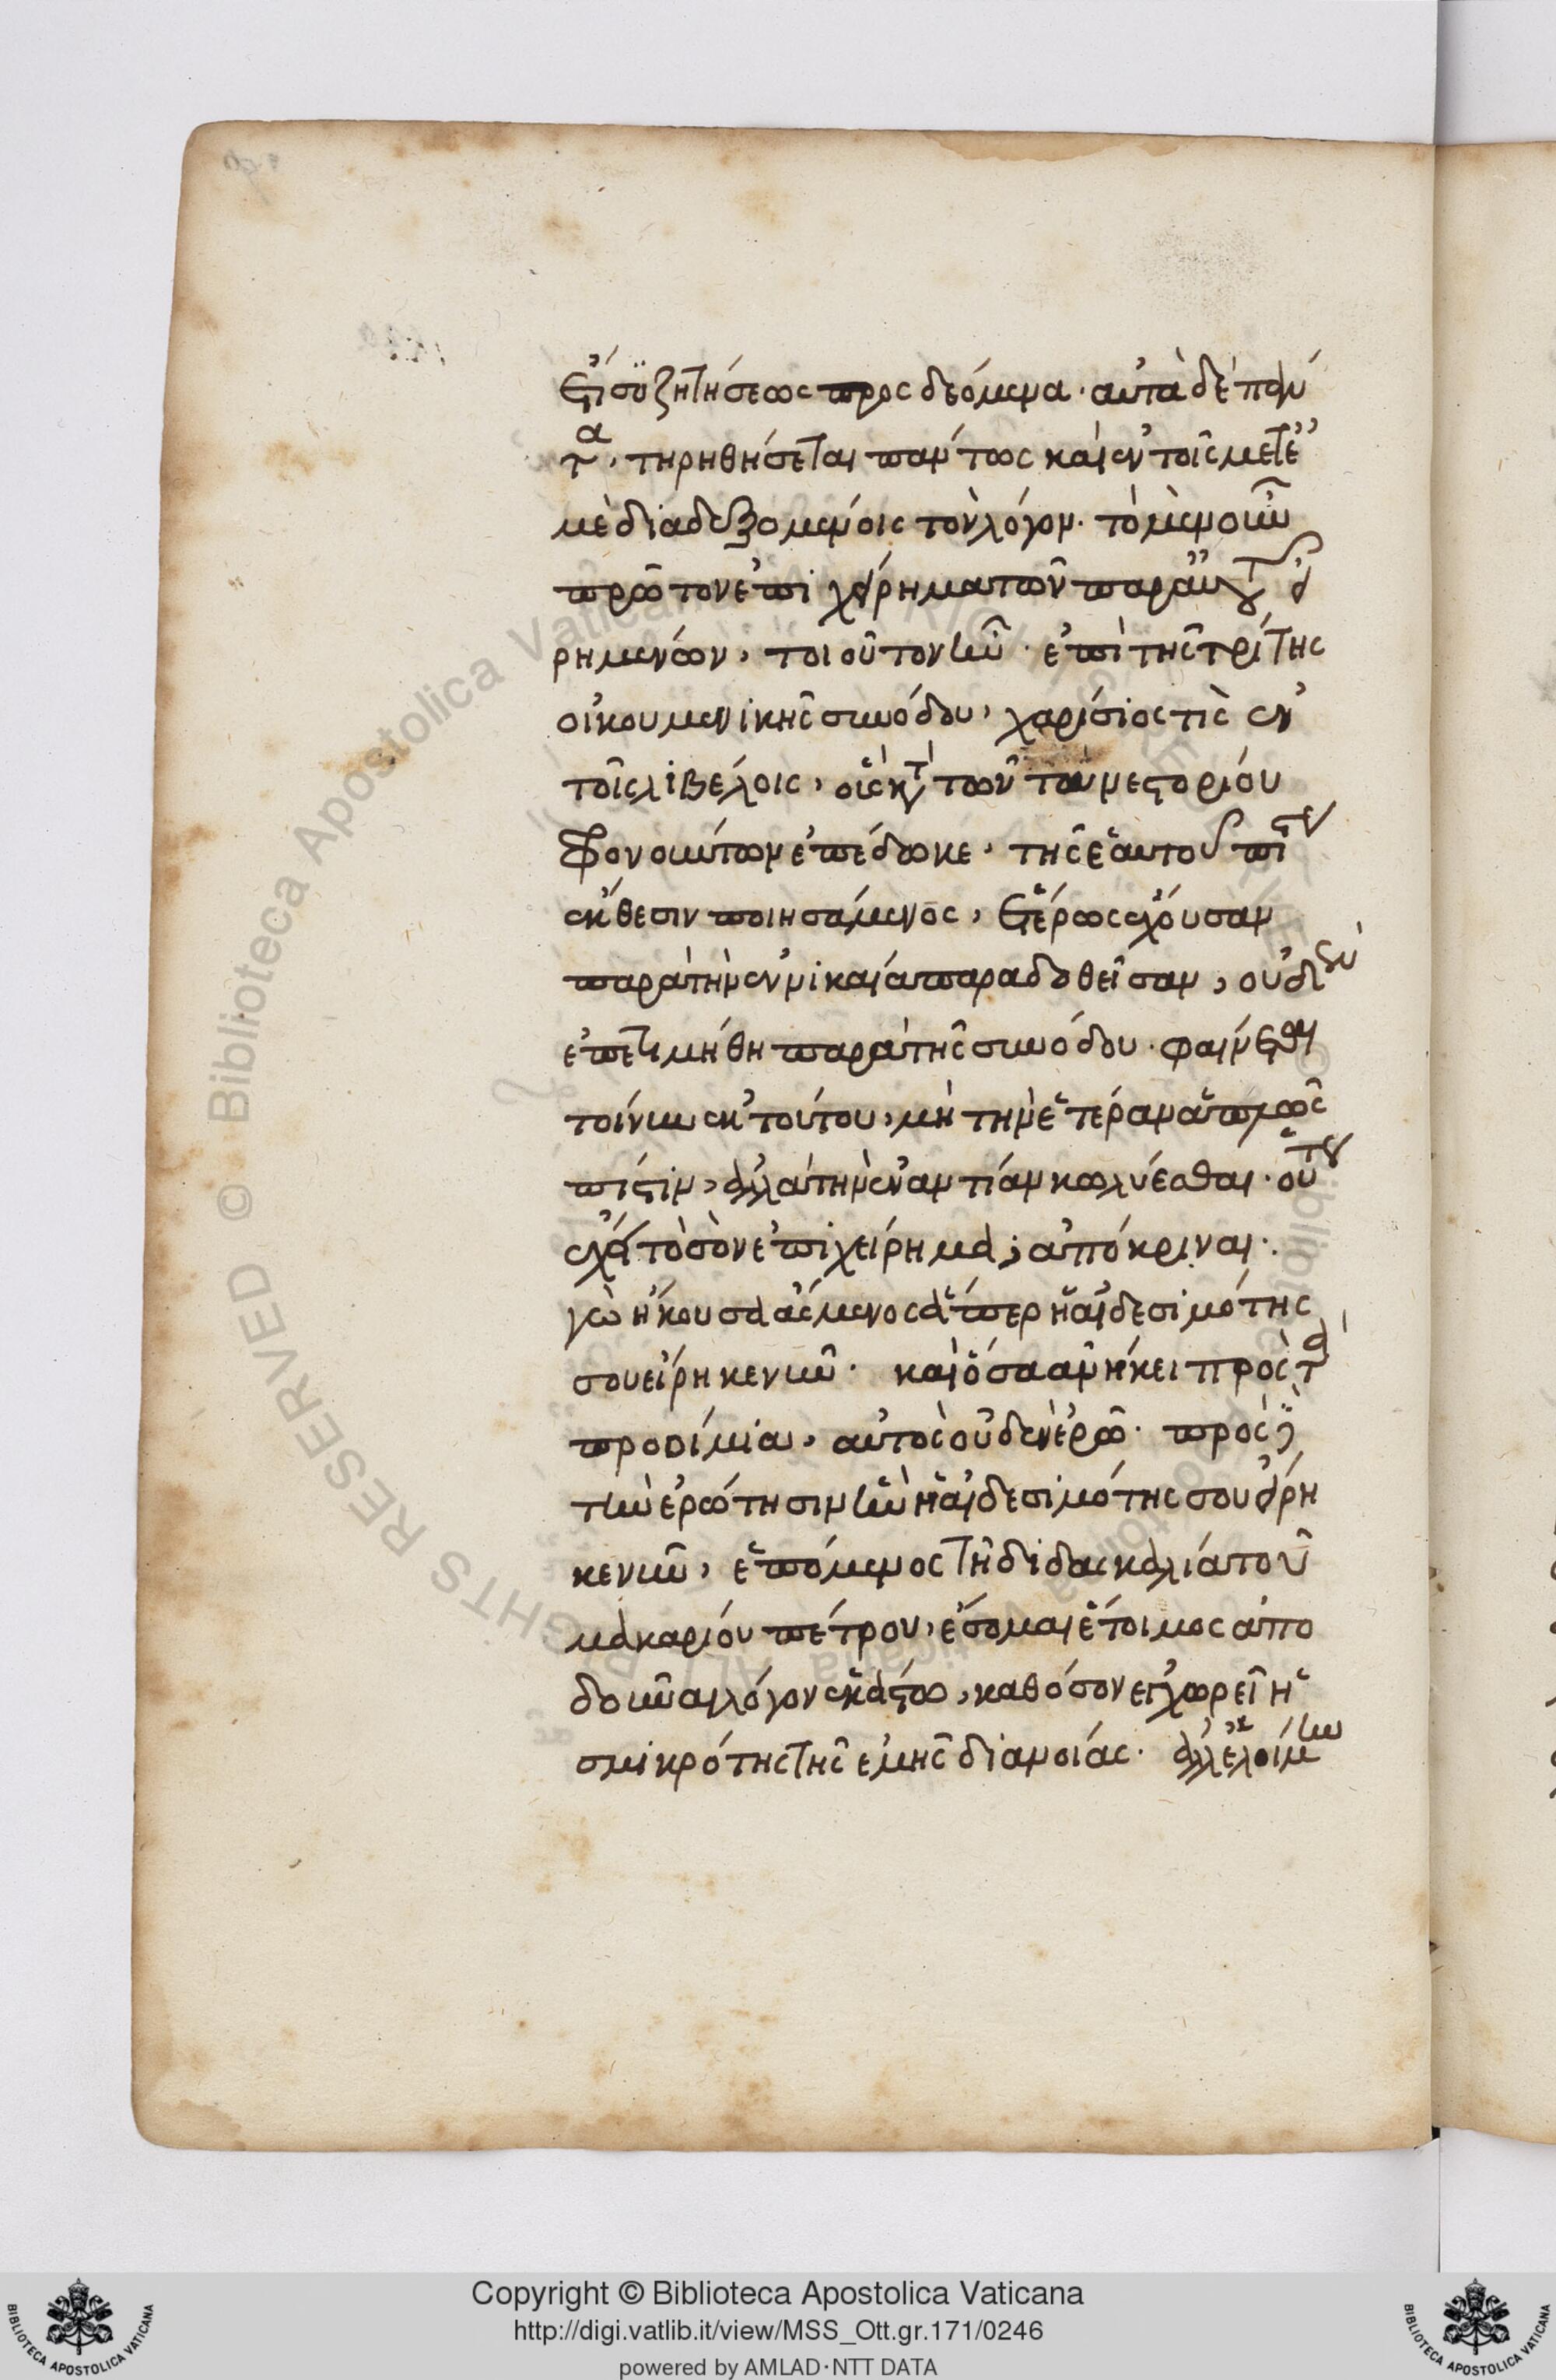 ἔτι συζητήσεως προσδεόμενα· αὐτὰ δὲ πάν
τα, τηρηθήσεται πάντως καὶ ἐν τοῖς μετ' ἐ
μὲ διαδεξομένοις τὸν λόγον· τὸ μὲν οὖν
πρῶτον ἐπιχείρημα τῶν παρ' αὐτοῦ εἰ
ρημένων, τοιοῦτον ἦν· ἐπὶ τῆς τρίτης
οἰκουμενικῆς συνόδου, χαρίσιός τις ἐν
τοῖς λιβέλοις, οἷς κατὰ τῶν τὰ νεστορίου
φρονούντων ἐπέδωκε, τῆς ἑαυτοῦ πίστεως
ἔκθεσιν ποιησάμενος, ἑτέρως ἔχουσαν
παρὰ τὴν ἐν νικαία παραδοθεῖσαν, οὐδὲν
ἐπετιμήθη παρὰ τῆς συνόδου· φαίνεται
τοίνυν ἐκ τούτου, μὴ τὴν ἑτέραν ἁπλῶς
πίστιν, ἀλλὰ τὴν ἐναντίαν κωλύεσθαι· οὕτως
ἔχει τὸ σὸν ἐπιχείρημα; ἀπόκριναι·
γὼ ἤκουσα ἄσμενος ἅπερ ἡ αἰδεσιμότης
σου εἴρηκε νῦν· καὶ ὅσα ἀνήκει πρὸς τὰ
προοίμια, αὐτὸς οὐδὲν ἐρῶ· πρὸς δὲ
τὴν ἐρώτησιν ἣν ἡ αἰδεσιμότης σου εἴρη
κε νῦν, ἑπόμενος τῆ διδασκαλία τοῦ
μακαρίου πέτρου, ἔσομαι ἕτοιμος ἀπο
δοῦναι λόγον ἑκάστω, καθόσον ἐγχωρεῖ ἡ
σμικρότης τῆς ἐμῆς διανοίας· ἀλλ' ἑλοίμην